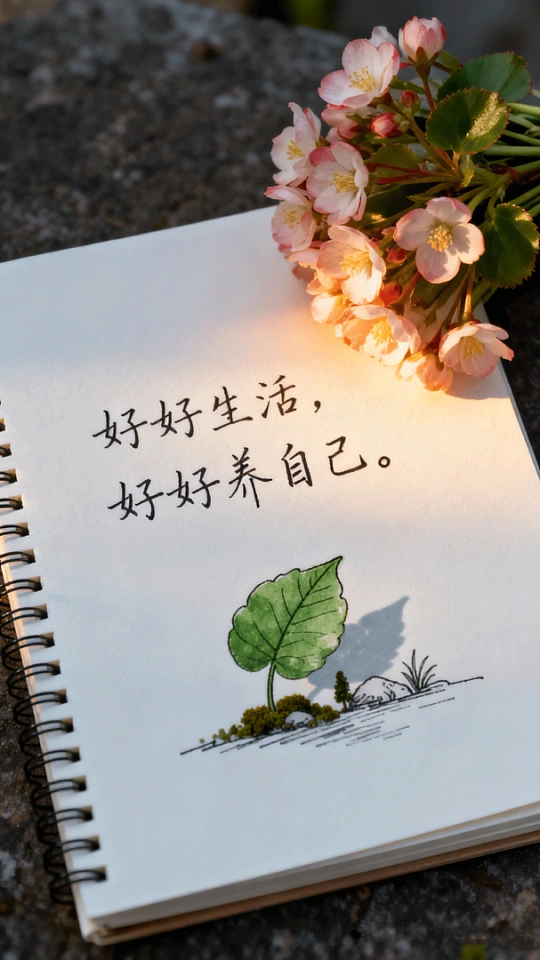 好好生活，
好好养自己。